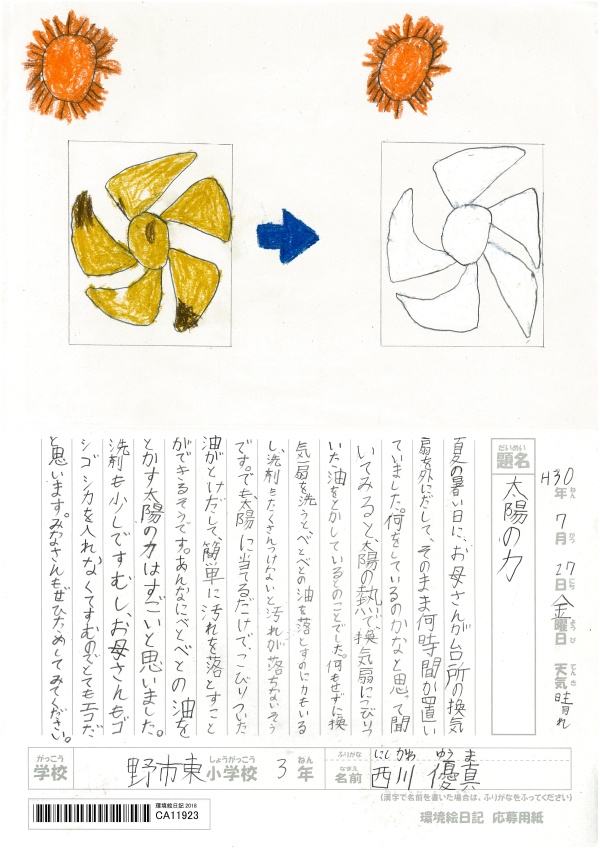 H30年ねん 7月がつ 27日にち 金曜日ようび 天気てんき 晴れ
だいめい
題名
太陽の力
夏の暑い日に、お母さんが台所の換気
扇を外にだして、そのまま何時間か置い
ていました。何をしているのかなと思って聞
いてみると、太陽の熱で、換気扇にこびりつ
いた油をとかしているとのことでした。何もせずに換
気扇を洗うとべとべとの油を落とすのに力もいる
し、洗剤もたくさんつけないと汚れが落ちないそう
です。でも、太陽に当てるだけで、こびりついた
油がとけだして、簡単に汚れを落とすこと
ができるそうです。あんなにべとべとの油を
とかす太陽の力はすごいと思いました。
洗剤も少しですむし、お母さんもゴ
シゴシ力を入れなくてすむのでとてもエコだ
と思います。みなさんもぜひためしてみてください。
がっこう
学校
野市東
しょうがっこう
小学校
3
ねん
年
ふりがな
にし かわ ゆう ま
なまえ
名前
西川 優真
(漢字で名前を書いた場合は、ふりがなをふってください)
環境絵日記 2018
CA11923
環境絵日記 応募用紙